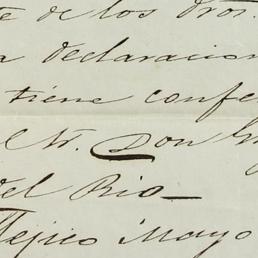 te de los Dros.
a declaracion
tiene confe
el Sr. Don
del Rio
Mejico Mayo